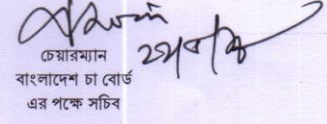 চেয়ারম্যান
বাংলাদেশ চা বোর্ড
এর পক্ষে সচিব